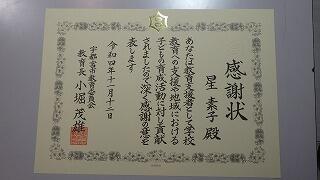 感謝状
星 素子 殿
あなたは教育支援者として学校
教育への支援や地域における
子どもの育成活動に対し貢献
されましたので深く感謝の意を
表します
令和四年十一月十二日
宇都宮市教育委員会
教育長 小堀 茂雄